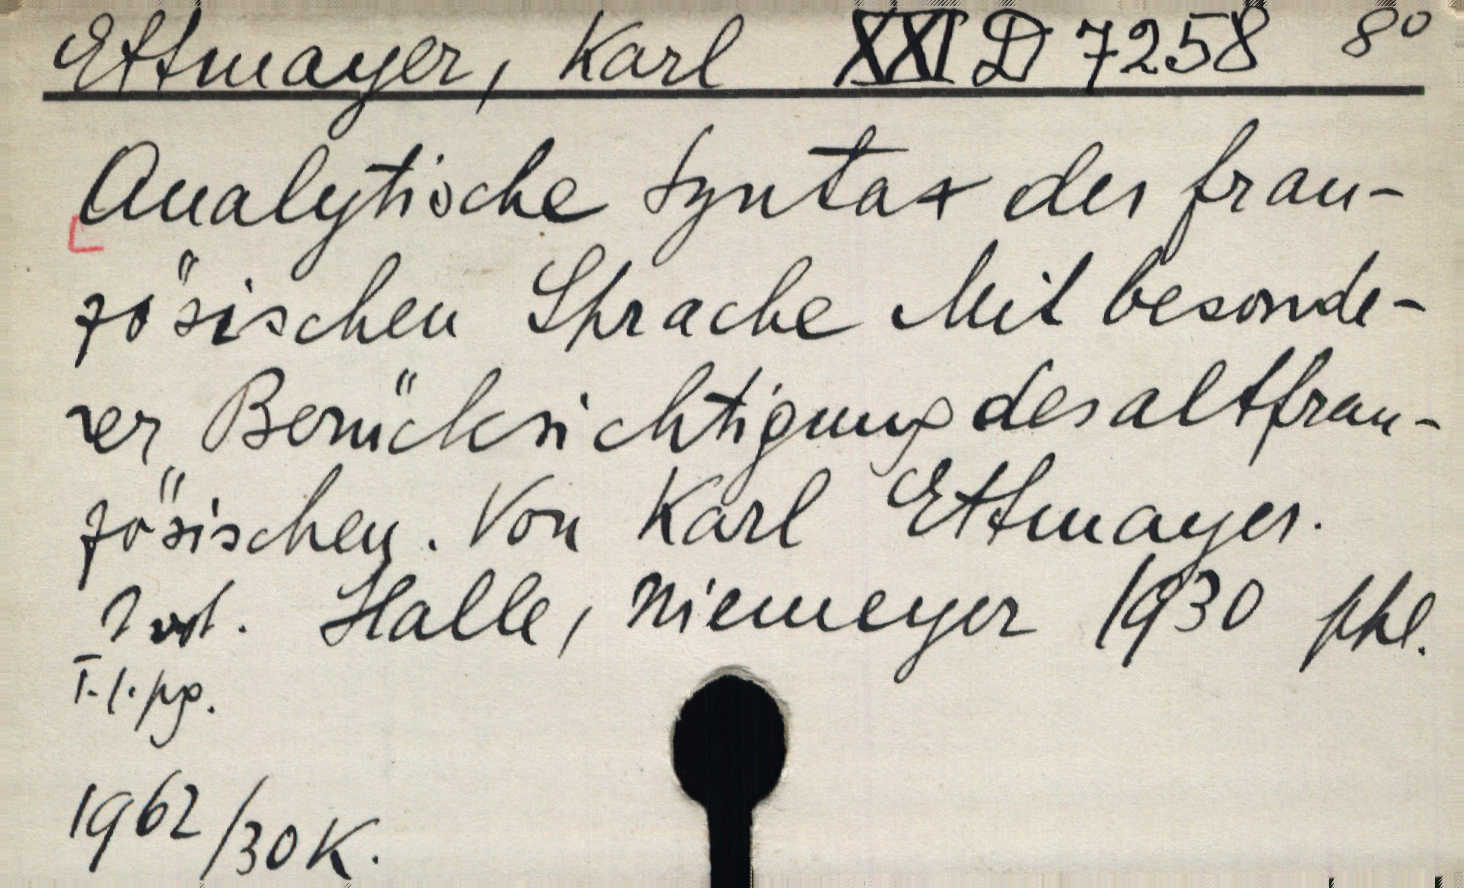 Ettmayer, Karl XXI D 7258 8°
Analytische Syntax der fran-
zösischen Sprache Mit besonde-
rer Berücksichtigung des altfran-
zösischen. Von Karl Ettmayer.
Halle, Niemeyer 1930 phl.
1962/30K.